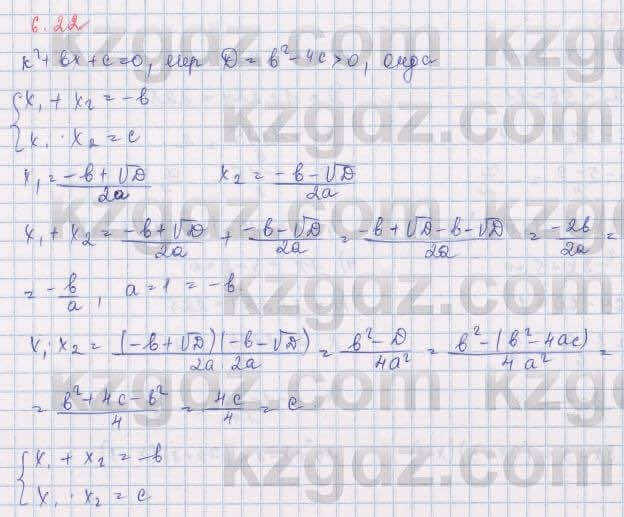 6.22
x²+bx+c=0, егер D=b²-4c>0, онда
{x₁+x₂=-b
{x₁·x₂=c
x₁=(-b+√D)/2a x₂=(-b-√D)/2a
x₁+x₂=(-b+√D)/2a+(-b-√D)/2a=(-b+√D-b-√D)/2a=-2b/2a=
=-b/a, a=1=-b.
x₁·x₂=(-b+√D)(-b-√D)/2a 2a=(b²-D)/4a²=(b²-(b²-4ac))/4a²=
=(b²+4c-b²)/4=4c/4=c.
{x₁+x₂=-b
{x₁·x₂=c
kzgdz.com